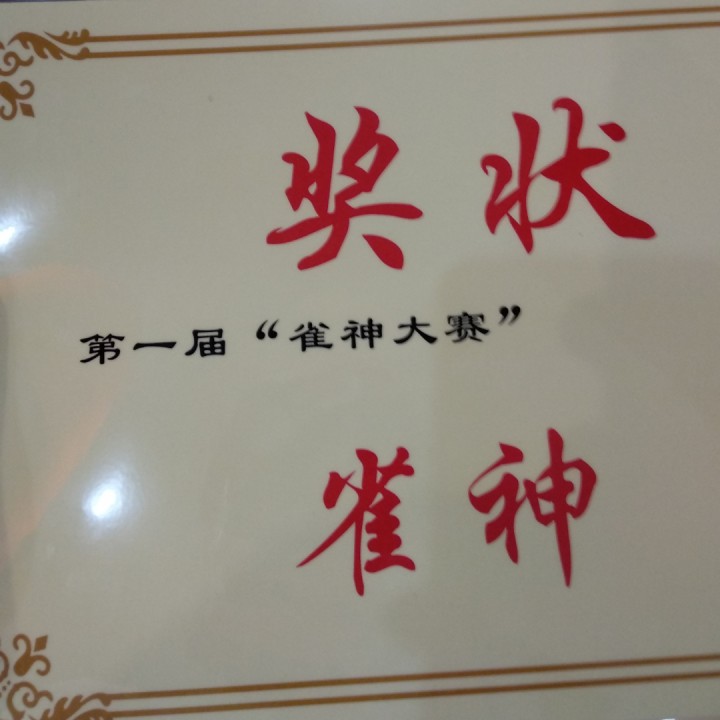 奖状
第一届“雀神大赛”
雀神